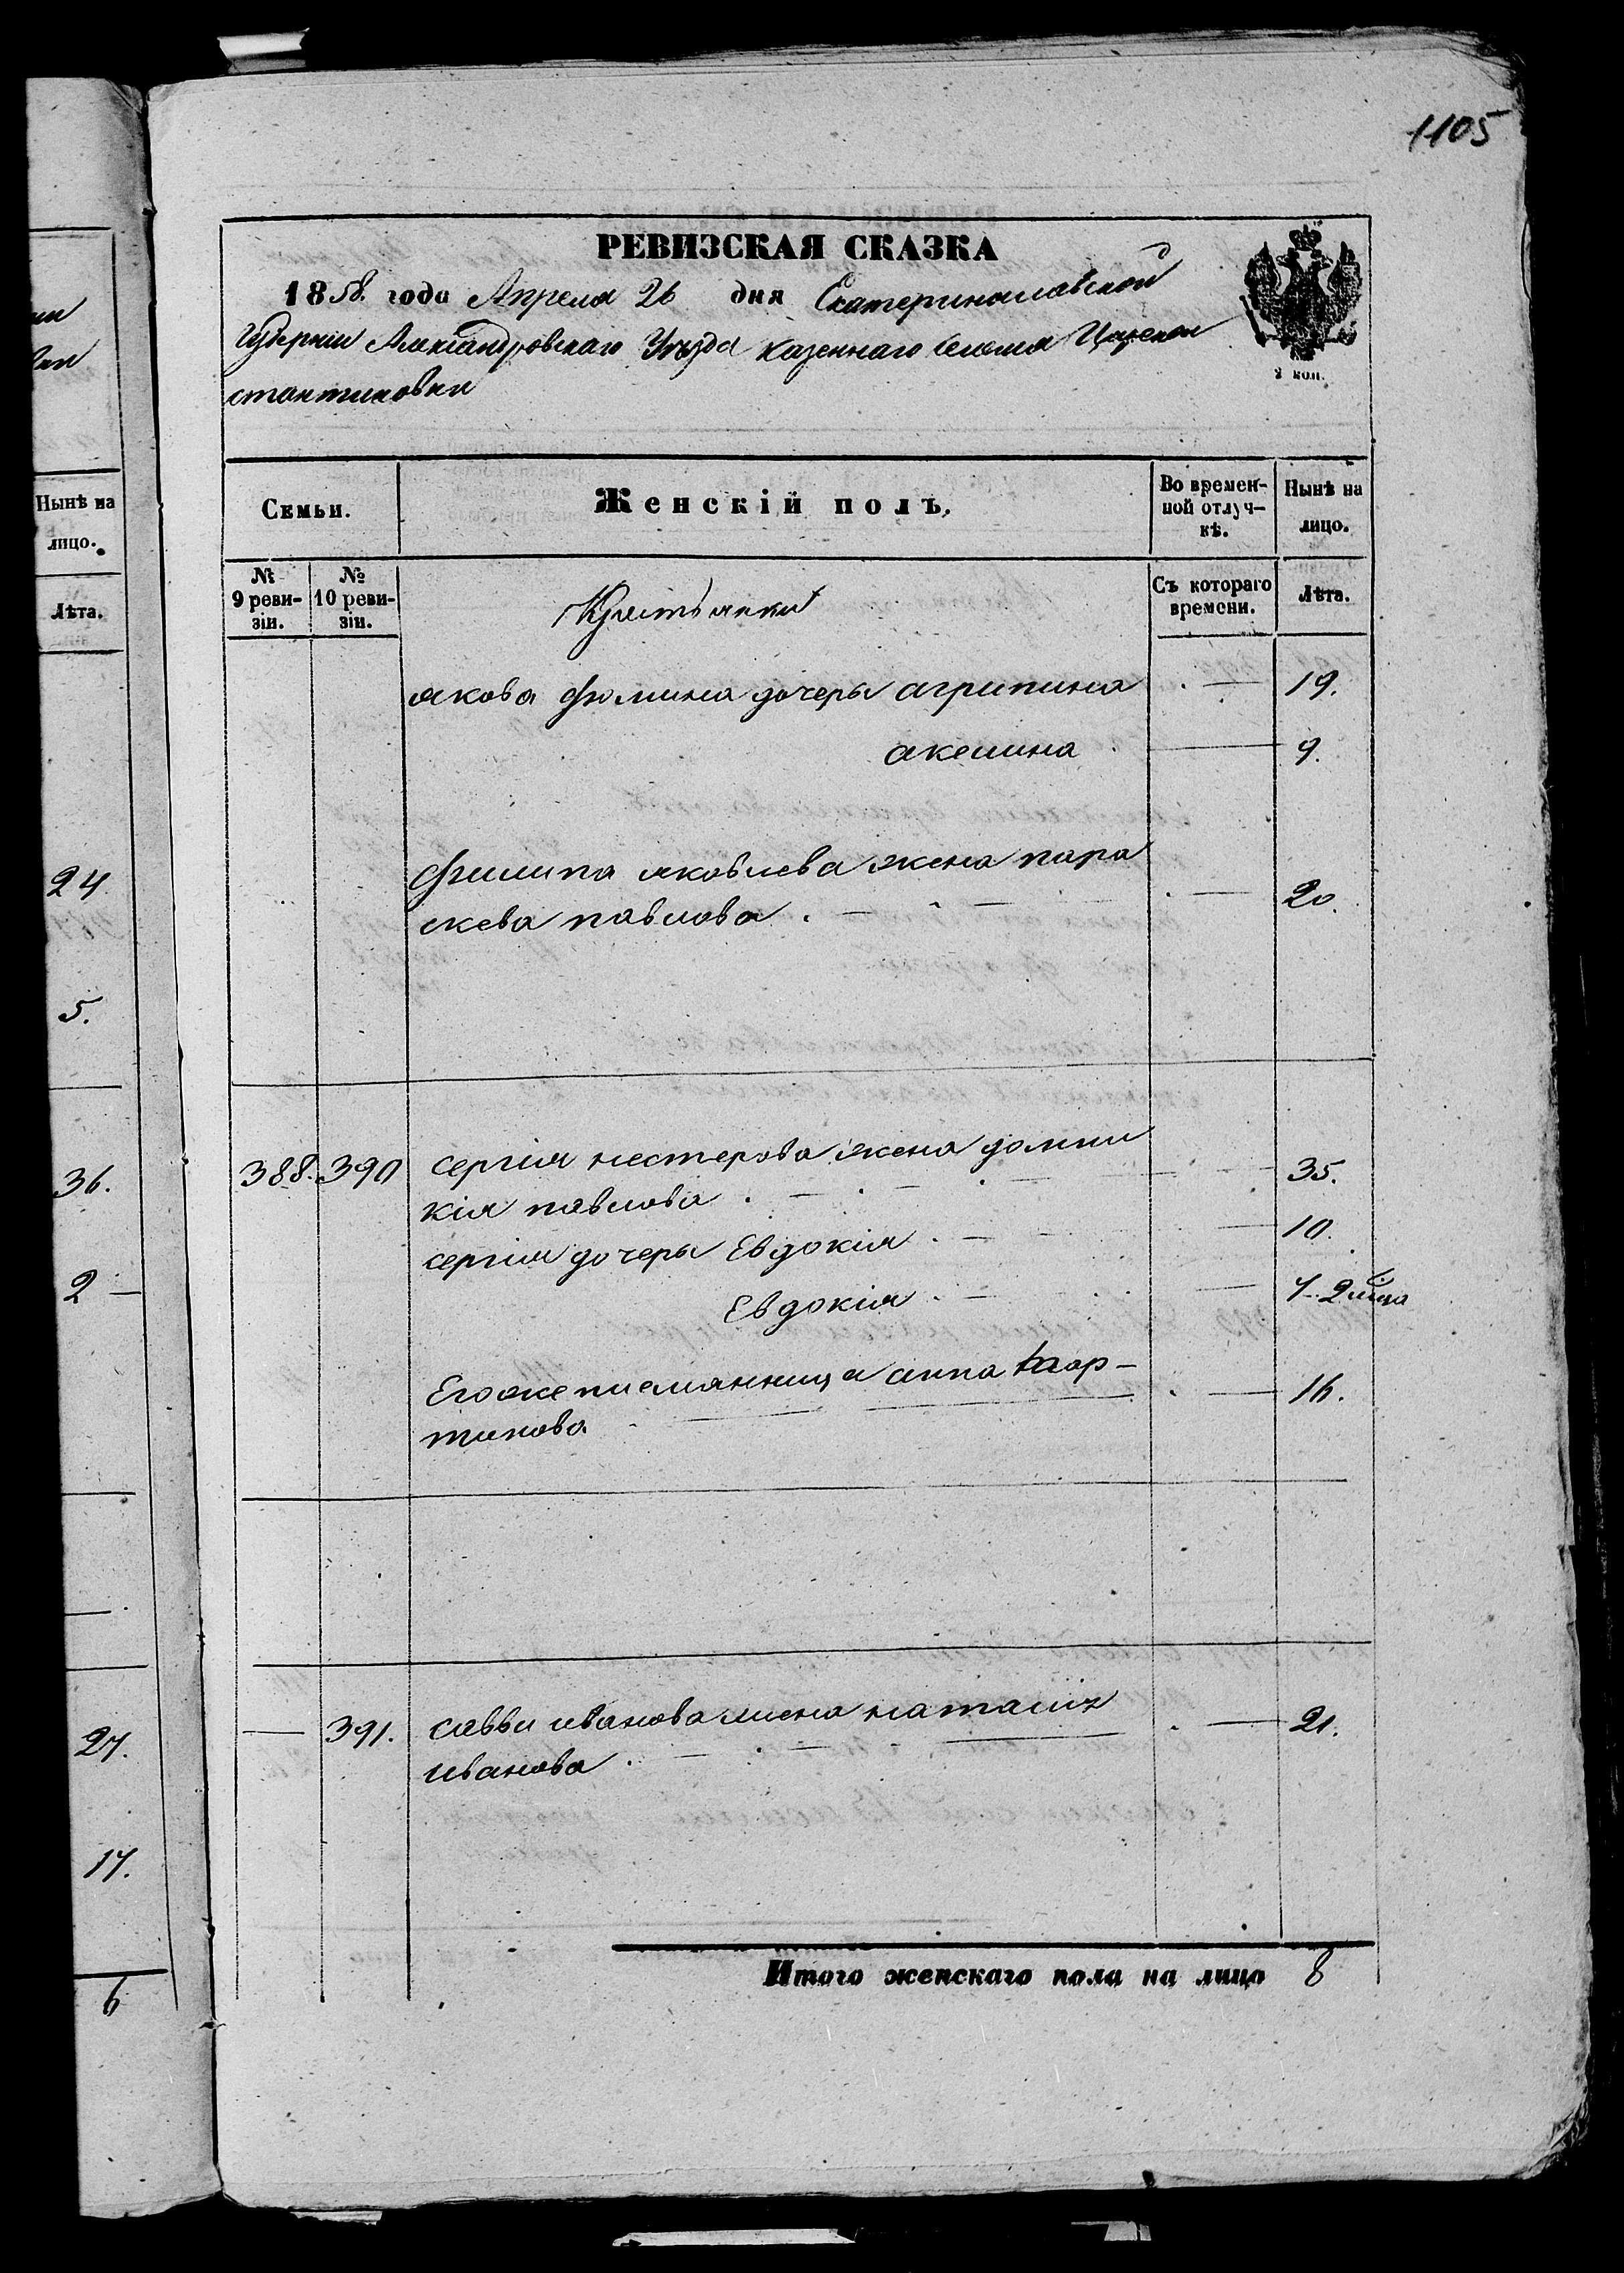 1105
РЕВИЗСКАЯ СКАЗКА
1858. года Апреля 26 дня Екатеринославской
Губернии Александровскаго Уѣзда казеннаго Селения Царекон
стантиновки
2 коп.
Семьи.
Женскій полъ.
Во времен-
ной отлуч-
кѣ.
Нынѣ на
лицо.
№
9 реви-
зіи.
№
10 реви-
зіи.
Крестьянки
Съ котораго
времени.
Лѣта.
якова фомина дочери агрипина 19.
акелина 9.
Филипа яковлева жена пара
скева павлова 20.
388. 390 сергія нестерова жена домни
кія павлова 35.
сергія дочери Евдокія 10.
Евдокія 7. 2
Егоже племянница анна мар-
тинова 16.
391. саввы иванова жена наталія
иванова 21.
Итого женскаго пола на лицо 8
Нынѣ на
лицо.
Лѣта.
24
5.
36.
2
27.
17.
6